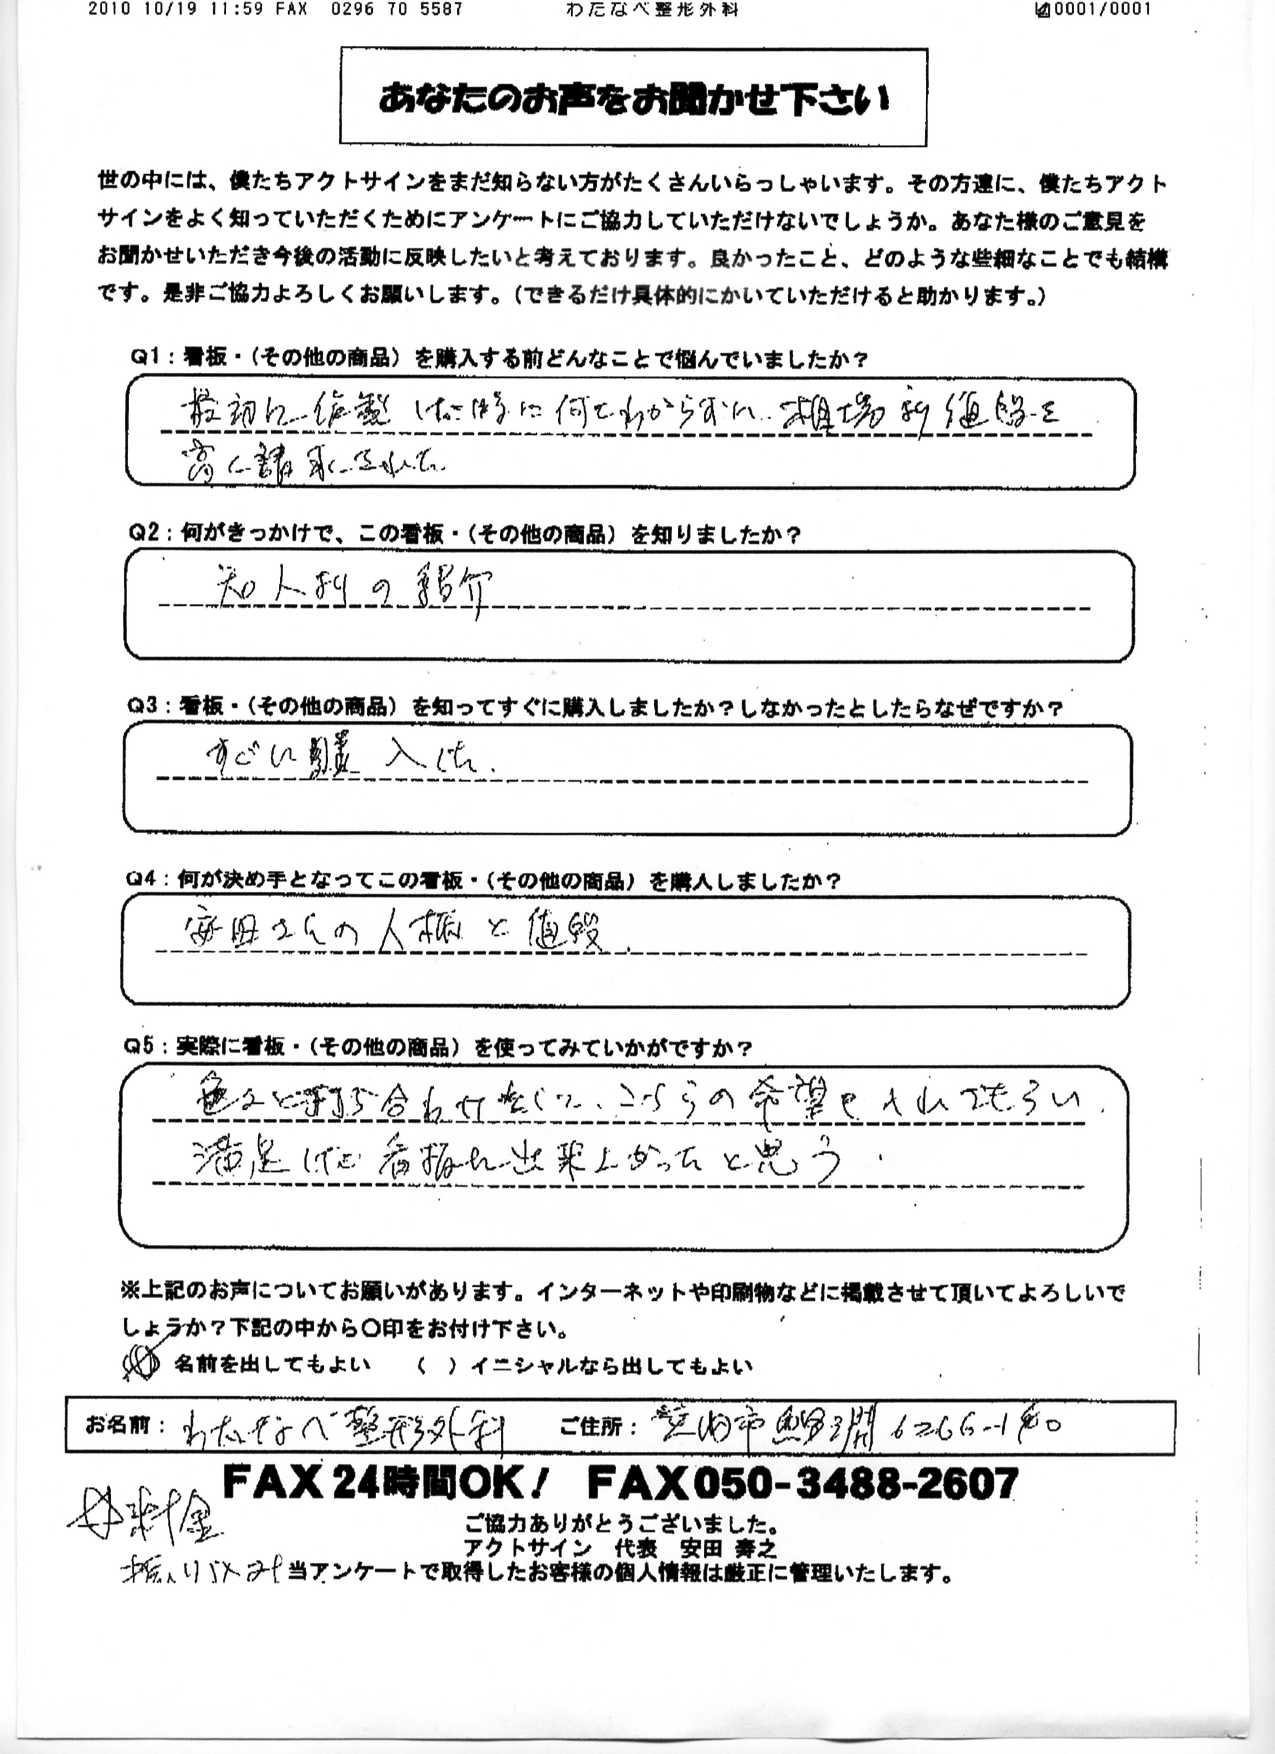 2010 10/19 11:59 FAX 0296 70 5587 わたなべ整形外科 0001/0001
あなたのお声をお聞かせ下さい
世の中には、僕たちアクトサインをまだ知らない方がたくさんいらっしゃいます。その方達に、僕たちアクト
サインをよく知っていただくためにアンケートにご協力していただけないでしょうか。あなた様のご意見を
お聞かせいただき今後の活動に反映したいと考えております。良かったこと、どのような些細なことでも結構
です。是非ご協力よろしくお願いします。(できるだけ具体的にかいていただけると助かります。)
Q1:看板・(その他の商品)を購入する前どんなことで悩んでいましたか?
最初に作製した時に何もわからずに、相場より値段を
高く請求された。
Q2:何がきっかけで、この看板・(その他の商品)を知りましたか?
知人よりの紹介
Q3:看板・(その他の商品)を知ってすぐに購入しましたか?しなかったとしたらなぜですか?
すぐに購入した。
Q4:何が決め手となってこの看板・(その他の商品)を購入しましたか?
安田さんの人柄と値段
Q5:実際に看板・(その他の商品)を使ってみていかがですか?
色々と打ち合わせをして、こちらの希望を入れてもらい、
満足した看板に出来上がったと思う。
※上記のお声についてお願いがあります。インターネットや印刷物などに掲載させて頂いてよろしいで
しょうか?下記の中から○印をお付け下さい。
(○) 名前を出してもよい ( ) イニシャルなら出してもよい
お名前: わたなべ整形外科 ご住所:
FAX24時間OK! FAX050-3488-2607
料金
ご協力ありがとうございました。
アクトサイン 代表 安田 寿之
当アンケートで取得したお客様の個人情報は厳正に管理いたします。